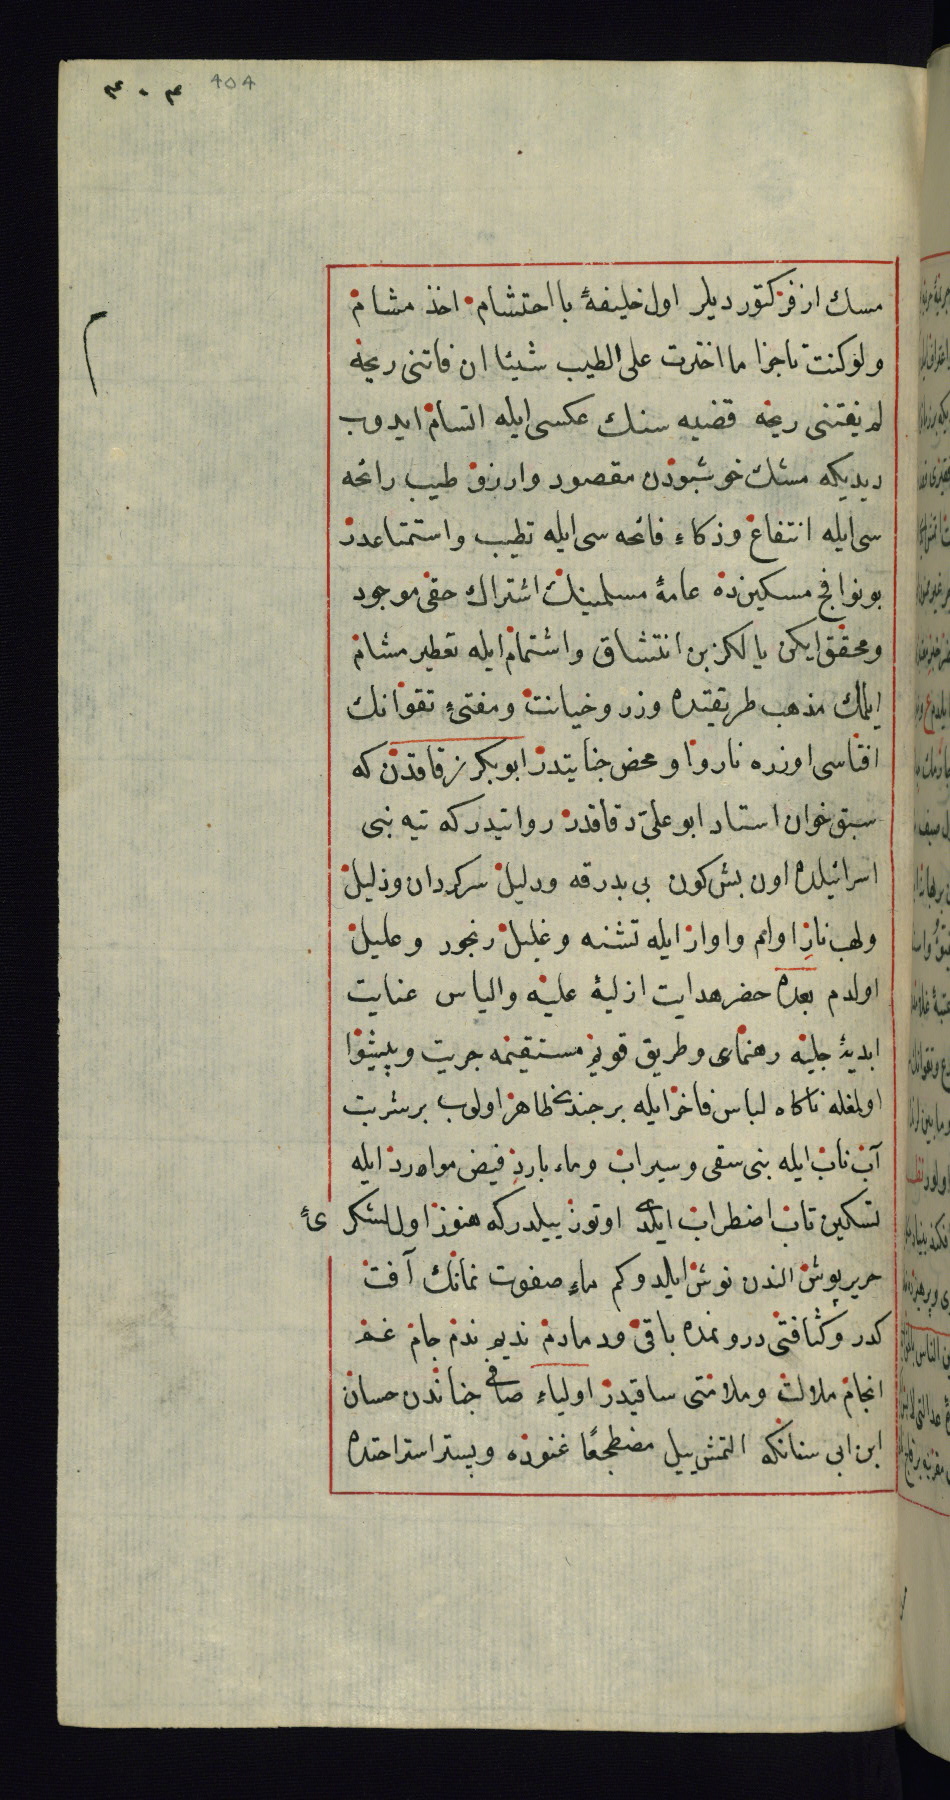 ۴۰۴ 404
مسك ازفر كتورديلر اول خليفهٔ با احتشام اخذ مشام
ولو كنت تاجرا ما اخترت على الطيب شيئا ان فاتنى ربحه
لم يفتنى ريحه قضيه سنك عكسى ايله اتسام ايدوب
ديديكه مشك خوشبودن مقصود وارزو طيب رائحه
سى ايله انتفاع وذكاء فائحه سى ايله تطيب واستمتاعدر
بو نوافج مسكين‌ده عامهٔ مسلمينك اشتراك حقى موجود
ومحقق ايكن يالكز بن انتشاق واشتمام ايله تعطير مشام
ايلمك مذهب طريقتده وزر وخيانت ومفتئ تقوانك
افتاسى اوزره ناروا ومحض جنايتدر ابو بكر زقاقدن كه
سبق خوان استاد ابو على دقاقدر روايتدر كه تيه بنى
اسرائيلده اون بش كون بى بدرقه ودليل سركردان وذليل
ولهب ناز اوام واوار ايله تشنه وغليل رنجور وعليل
اولدم بعده حضر هدايت ازليهٔ عليه والياس عنايت
ابديهٔ جليه رهنماى وطريق قويم مستقيمه جريت وپيشوا
اولمغله ناكاه لباس فاخر ايله بر جندى ظاهر اولوب بر شربت
آب ناب ايله بنى سقى وسيراب وماء بارد فيض موارد ايله
تسكين تاب اضطراب ايلدى اوتوز ييلدر كه هنوز اول لشكرئ
حرير پوش الندن نوش ايلدوكم ماء صفوت نمانك آفت
كدر وكثافتى درونمده باقى ودمادم نديم ندم جام غم
انجام ملالت وملامتى ساقيدر اولياء صافى جناندن حسان
ابن ابى سنانكه التمش ييل مضطجعًا غنوده وبستر استراحتده